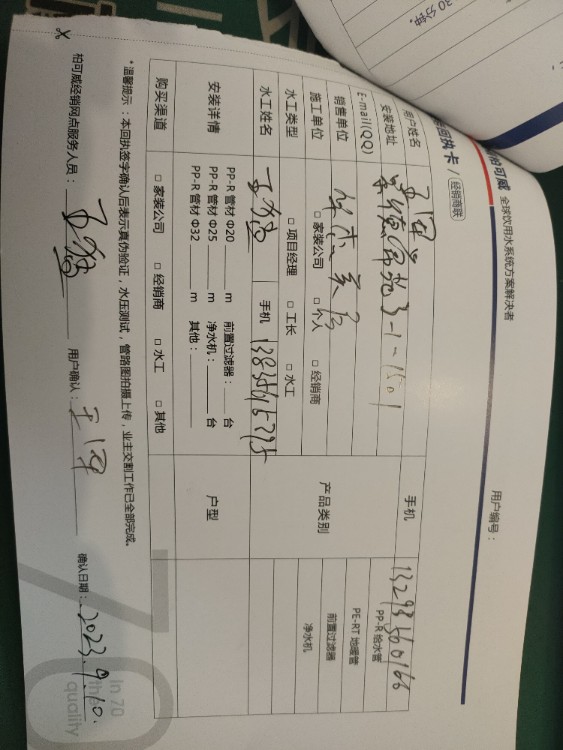 30分钟。
柏可威 全球饮用水系统方案解决者
回执卡 / 经销商联
用户编号：
用户姓名 王军 手机 13293360166
安装地址 3-1-1501
E-mail(QQ)
销售单位
施工单位 □ 家装公司 □ 个人 □ 经销商
水工类型 □ 项目经理 □ 工长 □ 水工
水工姓名 手机
产品类别
PP-R 给水管
PE-RT 地暖管
前置过滤器
净水机
安装详情
PP-R 管材 Φ20 m 前置过滤器： 台
PP-R 管材 Φ25 m 净水机： 台
PP-R 管材 Φ32 m 其他：
户型
购买渠道 □ 家装公司 □ 经销商 □ 水工 □ 其他
*温馨提示：本回执签字确认后表示真伪验证，水压测试，管路图拍摄上传，业主交割工作已全部完成。
柏可威经销网点服务人员： 用户确认：王军 确认日期：2023.9.10.
In 70
the
quality